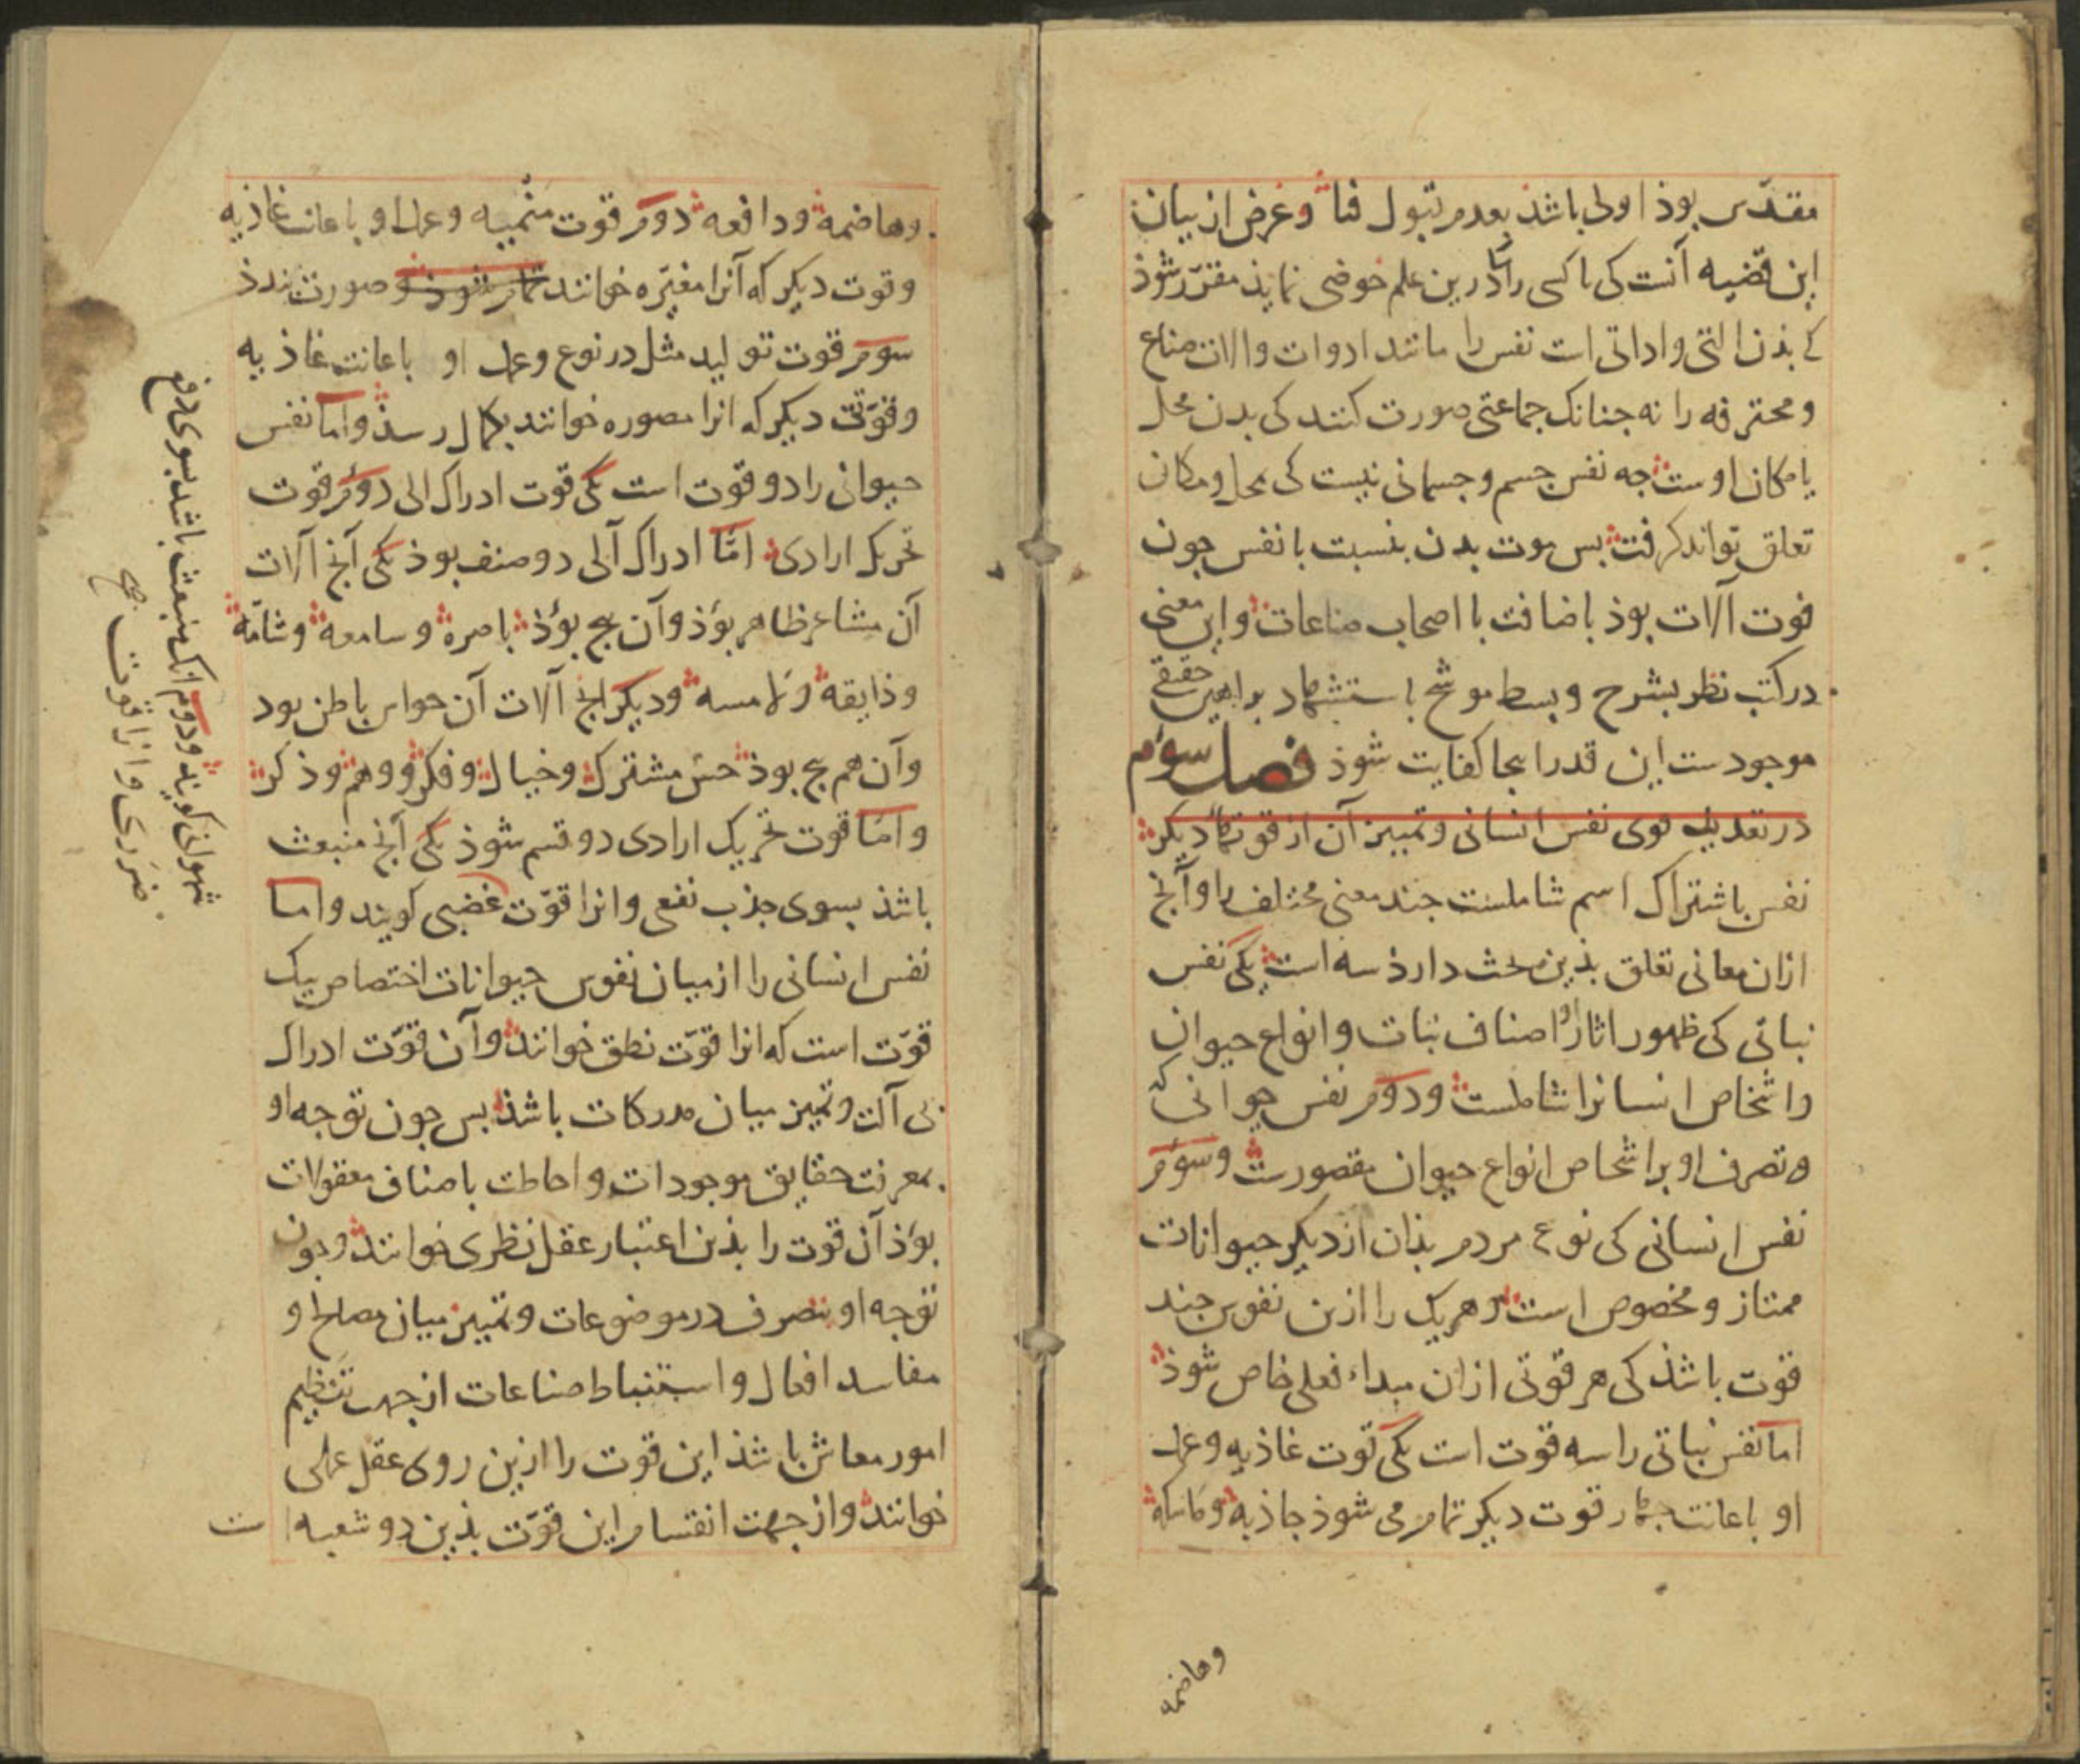 مقدّس بوذ اولی باشذ بعدم قبول فنا و غرض از بیان
این قضیه آنست کی تا کسی را که درین علم خوضی نمایذ مقرّر شوذ
کی بذن التی و اداتی است نفس را مانند ادوات و الات صناع
و محترفه را نه جنانک جماعتی صورت کنند کی بدن محل
یا مکان اوست جه نفس جسم و جسمانی نیست کی بمحل و مکان
تعلق تواند کرفت بس موت بدن بنسبت با نفس جون
فوت آلات بوذ باضافت با اصحاب صناعات و این معنی
در کتب نظر بشرح و بسط موشح باستشهاد براهین حقیقی
موجودست این قدر اینجا کفایت شوذ فصل سوم
در تعدید قوی نفس انسانی و تمییز آن از قوتهاء دیکر
نفس باشتراک اسم شاملست جند معنی مختلف را و آنج
ازان معانی تعلق بذین مبحث دارذ سه است یکی نفس
نباتی کی ظهور اثار او اصناف نبات و انواع حیوان
و اشخاص انسانرا شاملست و دوم نفس حیوانی که
و تصرف او بر اشخاص انواع حیوان مقصورست و سوم
نفس انسانی کی نوع مردم بذان از دیکر حیوانات
ممتاز و مخصوص است و هر یک را ازین نفوس جند
قوت باشذ کی هر قوتی ازان مبداء فعلی خاص شوذ
اما نفس نباتی را سه قوت است یکی قوت غاذیه و عمل
او باعانت جهار قوت دیکر تمام می شوذ جاذبه و ماسکه
وهاضمه
وهاضمه و دافعه دوم قوت منمیه و عمل او باعانت غاذیه
و قوت دیکر که آنرا مغیّره خوانند تمام شوذ و صورت بندذ
سوم قوت تولید مثل در نوع و عمل او باعانت غاذیه
و قوّتی دیکر که انرا مصوره خوانند بکمال رسذ و اما نفس
حیوانی را دو قوت است یکی قوت ادراک الی دوم قوت
تحریک ارادی اما ادراک آلی دو صنف بوذ یکی آنج آلات
آن مشاعر ظاهر بوذ و آن بنج بوذ باصره و سامعه و شامّه
و ذایقه و لامسه و دیکر انج آلات آن حواس باطن بود
و آن هم بنج بوذ حس مشترک و خیال و فکر و وهم و ذکر
و اما قوت تحریک ارادی دو قسم شوذ یکی آنج منبعث
باشذ بسوی جذب نفعی و انرا قوّت غضبی کویند و اما
نفس انسانی را از میان نفوس حیوانات اختصاص بیک
قوّت است که انرا قوّت نطق خوانند و آن قوّت ادراک
بی آلت و تمییز میان مدرکات باشذ بس جون توجه او
بمعرفت حقایق موجودات و احاطت باصناف معقولات
بوذ آن قوت را بذین اعتبار عقل نظری خوانند و جون
توجه او بتصرف در موضوعات و تمییز میان مصالح و
مفاسد افعال و استنباط صناعات از جهت تنظیم
امور معاش باشذ این قوت را ازین روی عقل عملی
خوانند و از جهت انقسام این قوّت بذین دو شعبه است
شهوانی کویند و دوم انک منبعث باشد بسوی دفع
ضرری و انرا قوت صح